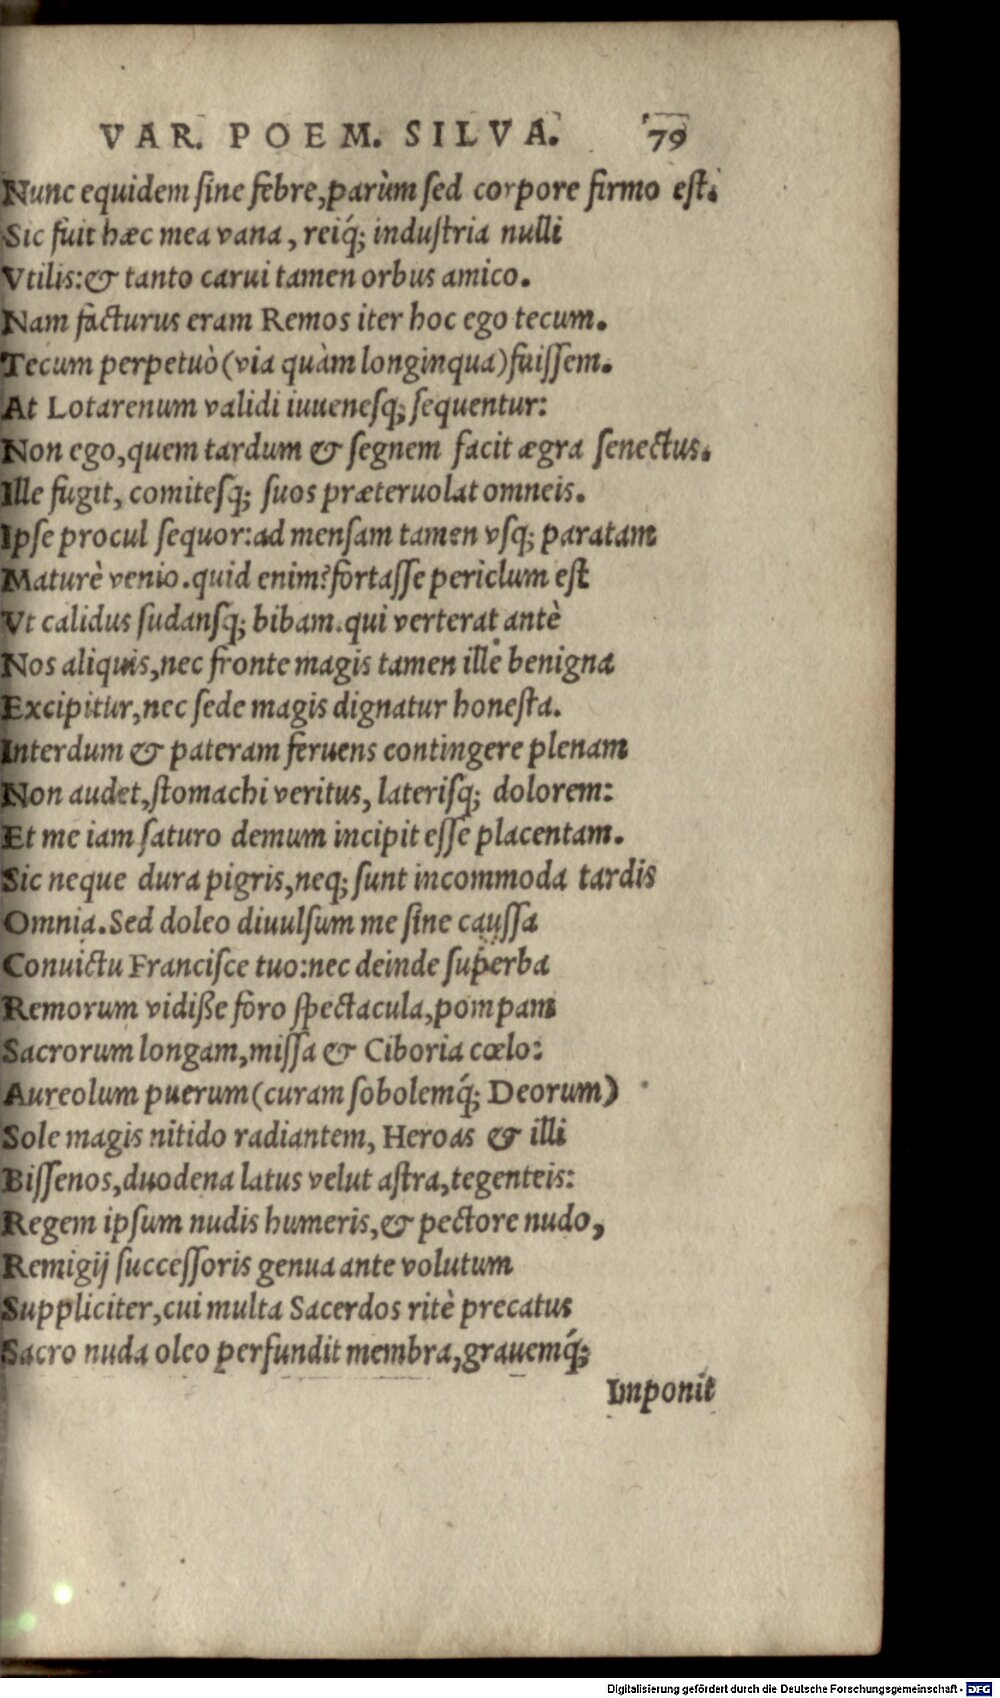 VAR. POEM. SILVA. 79
Nunc equidem sine febre, parùm sed corpore firmo est.
Sic fuit hæc mea vana, reiq́; industria nulli
Vtilis: & tanto carui tamen orbus amico.
Nam facturus eram Remos iter hoc ego tecum.
Tecum perpetuò (via quàm longinqua) fuissem.
At Lotarenum validi iuuenesq; sequentur:
Non ego, quem tardum & segnem facit ægra senectus.
Ille fugit, comitesq; suos præteruolat omneis.
Ipse procul sequor: ad mensam tamen vsq; paratam
Maturè venio. quid enim? fortasse periclum est
Vt calidus sudansq; bibam. qui verterat antè
Nos aliquis, nec fronte magis tamen ille benigna
Excipitur, nec sede magis dignatur honesta.
Interdum & pateram feruens contingere plenam
Non audet, stomachi veritus, laterisq; dolorem:
Et me iam saturo demum incipit esse placentam.
Sic neque dura pigris, neq; sunt incommoda tardis
Omnia. Sed doleo diuulsum me sine caussa
Conuictu Francisce tuo: nec deinde superba
Remorum vidiße foro spectacula, pompam
Sacrorum longam, missa & Ciboria cœlo:
Aureolum puerum (curam sobolemq́; Deorum)
Sole magis nitido radiantem, Heroas & illi
Bissenos, duodena latus velut astra, tegenteis:
Regem ipsum nudis humeris, & pectore nudo,
Remigij successoris genua ante volutum
Suppliciter, cui multa Sacerdos ritè precatus
Sacro nuda oleo perfundit membra, grauemq́;
Imponit
Digitalisierung gefördert durch die Deutsche Forschungsgemeinschaft - DFG